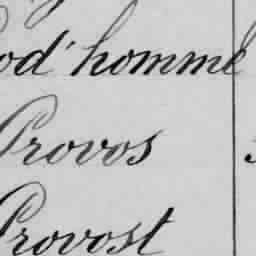 od'homme
Provos
Provost